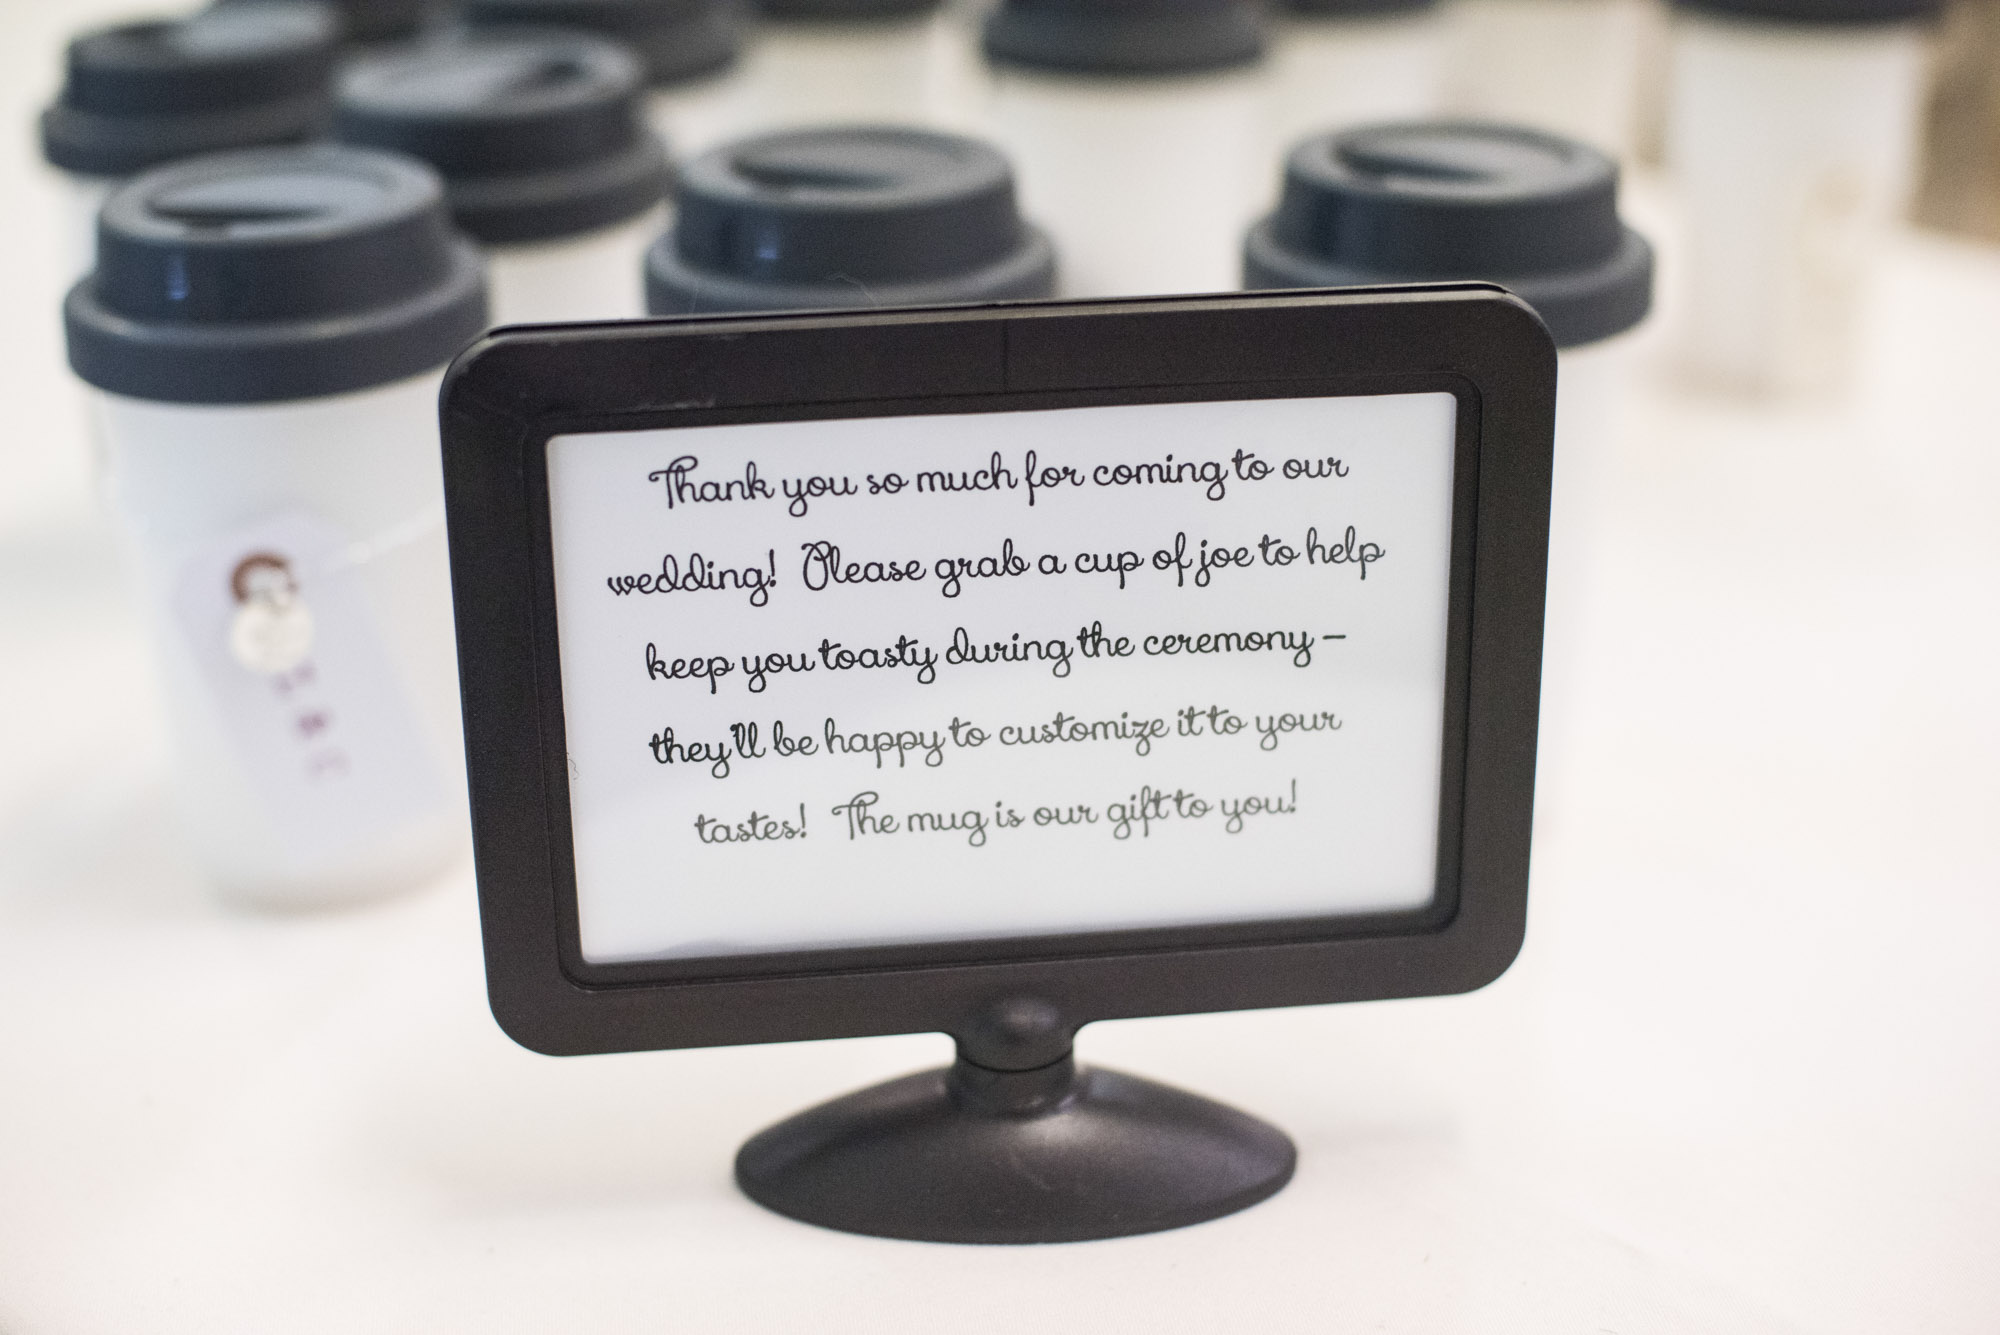 Thank you so much for coming to our
wedding! Please grab a cup of joe to help
keep you toasty during the ceremony –
they'll be happy to customize it to your
tastes! The mug is our gift to you!